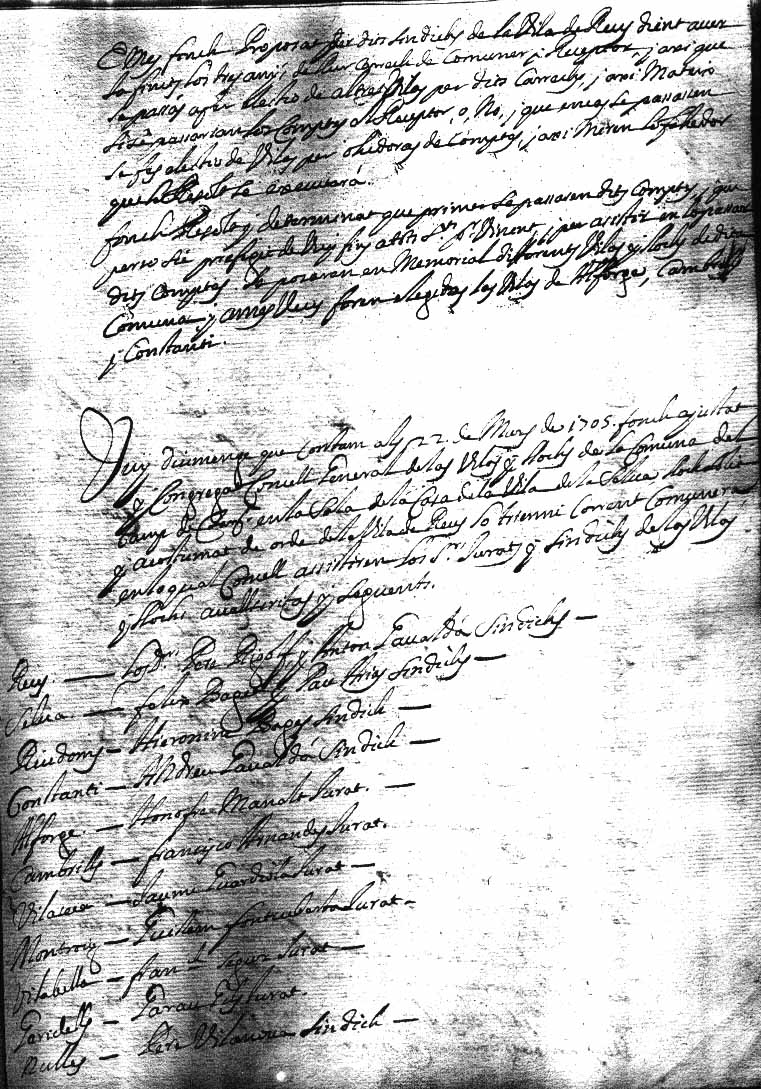 E Mes fonch Proposat per dits Sindichs de la Vila de Reus dient aver
la finit los tres anys de llur carrech de Comuner y Receptor, y axi que
se passas a fer electio de altres Vilas per dits Carrechs, y axi Mateix
si se passarian los Comptes al Receptor, o, No, y que en cas se passassen
se fes electio de Vilas per ohidoras de Comptes, y axi miren lo fahedor
que lo Resolt se executará.
fonch Resolt y determinat que primer se passassen dits Comptes, y que
perso sie prefigit de vuy fins a St Vincent, y per asistir en lo passar
dits Comptes, se posaren en Memorial differents Vilas y llochs de dita
Comuna y ames Reus foren elegidas las Vilas de Alforge, Cambrils
y Constanti.
Vuy diumenge que Contam als 22 de Mars de 1705. fonch ajustat
y Congregat Consell General de las Vilas y llochs de la Comuna del
Camp de en la Sala de la Casa de la Vila de la Selva, lloch solit
y acostumat de orde de la Vila de Reus lo trienni Corrent Comunera
en lo qual Consell assistiren los Srs Jurats y Sindichs de las Vilas
y llochs avall scrits y seguents.
Reus. — Los Drs Pere y Anton Gavaldá Sindichs —
Selva — felix Bages y Pau Sindichs —
Riudoms — Hieronim Bages Sindich —
Constanti — Andreu Gavaldá Sindich —
Alforge. — Honofre Jurat. —
Cambrils — francisco Jurat.
Vilaseca — Jaume Guardiola Jurat —
Montroig — Guillem Jurat —
Vilabella — Jurat —
Garidells — Garau Jurat.
Nulles — Pere Vilanova Sindich —